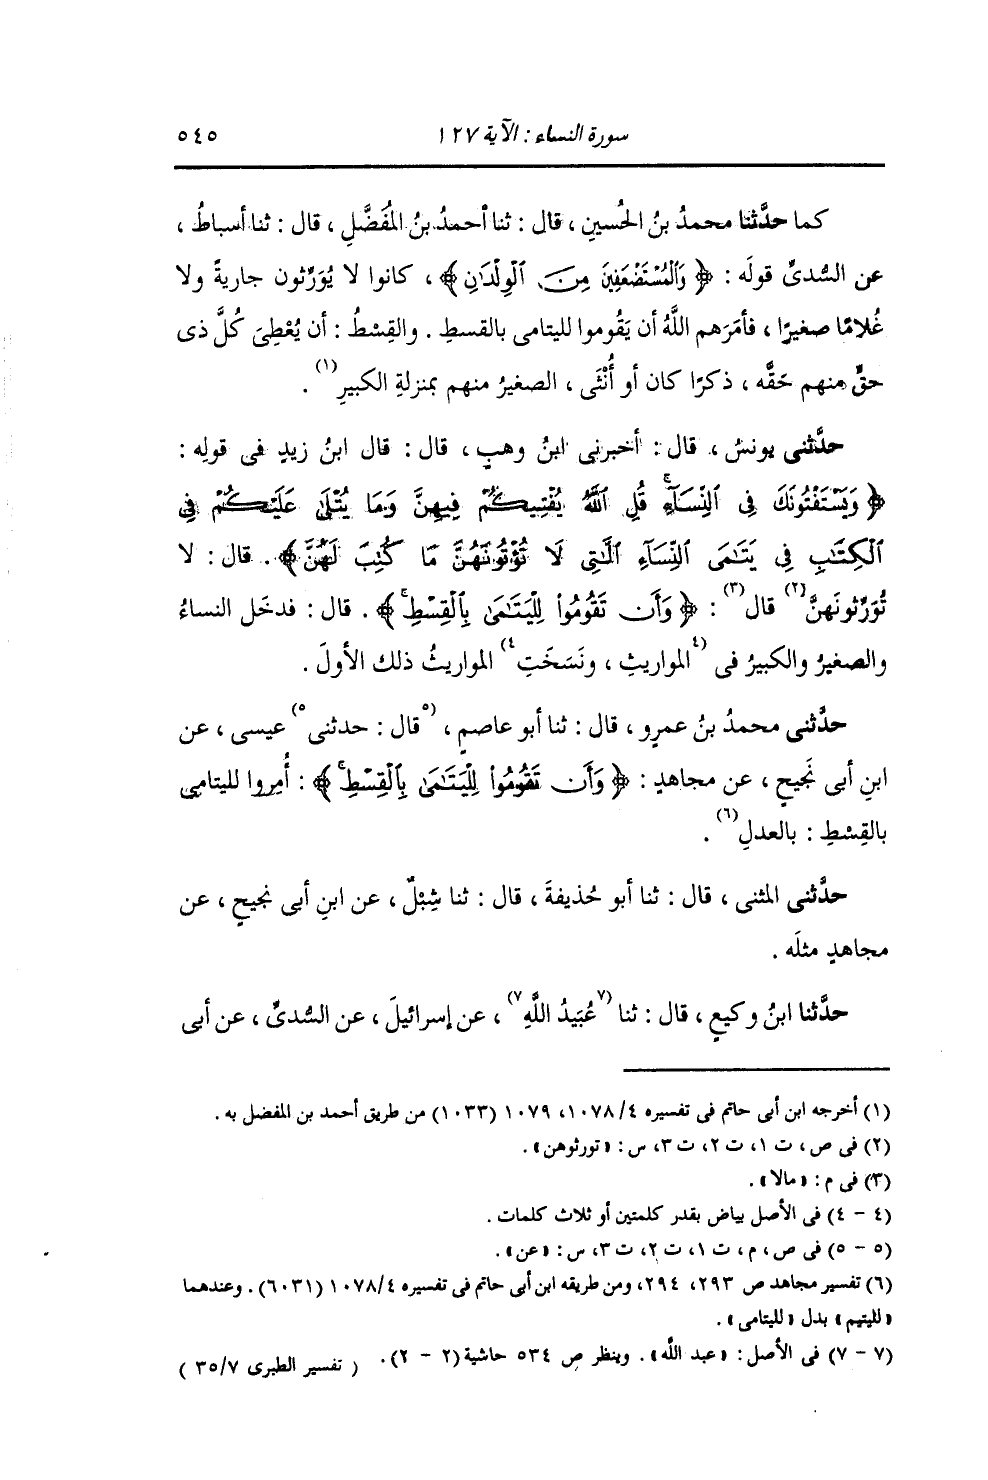 سورة النساء : الآية ١٢٧ ٥٤٥
كما حدَّثنا محمدُ بنُ الحُسينِ ، قال : ثنا أحمدُ بنُ المُفَضَّلِ ، قال : ثنا أسباطُ ،
عن السُّدىِّ قولَه : ﴿ وَٱلْمُسْتَضْعَفِينَ مِنَ ٱلْوِلْدَٰنِ ﴾ ، كانوا لا يُوَرِّثون جاريةً ولا
غُلامًا صغيرًا ، فأمَرَهم اللَّهُ أن يَقُوموا لليتامى بالقسطِ . والقِسْطُ : أن يُعْطِىَ كُلَّ ذى
حقٍّ منهم حَقَّه ، ذكرًا كان أو أُنْثَى ، الصغيرُ منهم بمنزلةِ الكبيرِ(١) .
حدَّثنى يونسُ ، قال : أخبرنى ابنُ وهبٍ ، قال : قال ابنُ زيدٍ فى قولِه :
﴿ وَيَسْتَفْتُونَكَ فِى ٱلنِّسَآءِۖ قُلِ ٱللَّهُ يُفْتِيكُمْ فِيهِنَّ وَمَا يُتْلَىٰ عَلَيْكُمْ فِى
ٱلْكِتَٰبِ فِى يَتَٰمَى ٱلنِّسَآءِ ٱلَّٰتِى لَا تُؤْتُونَهُنَّ مَا كُتِبَ لَهُنَّ ﴾ . قال : لا
تُوَرِّثونَهنَّ(٢) قال(٣) : ﴿ وَأَن تَقُومُوا۟ لِلْيَتَٰمَىٰ بِٱلْقِسْطِۚ ﴾ . قال : فدخَل النساءُ
والصغيرُ والكبيرُ فى (٤المواريثِ ، ونَسَخَتِ٤) المواريثُ ذلك الأولَ .
حدَّثنى محمدُ بنُ عمرٍو ، قال : ثنا أبو عاصمٍ ، (٥قال : حدثنى٥) عيسى ، عن
ابنِ أبى نَجيحٍ ، عن مجاهدٍ : ﴿ وَأَن تَقُومُوا۟ لِلْيَتَٰمَىٰ بِٱلْقِسْطِۚ ﴾ : أُمِروا لليتامى
بالقِسْطِ : بالعدلِ(٦) .
حدَّثنى المثنى ، قال : ثنا أبو حُذيفةَ ، قال : ثنا شِبْلٌ ، عن ابنِ أبى نجيحٍ ، عن
مجاهدٍ مثلَه .
حدَّثنا ابنُ وكيعٍ ، قال : ثنا (٧عُبَيدُ اللَّهِ٧) ، عن إسرائيلَ ، عن السُّدىِّ ، عن أبى
(١) أخرجه ابن أبى حاتم فى تفسيره ١٠٧٨/٤، ١٠٧٩ (١٠٣٣) من طريق أحمد بن المفضل به .
(٢) فى ص ، ت ١، ت ٢، ت ٣، س : « تورثوهن » .
(٣) فى م : « مالا » .
(٤ - ٤) فى الأصل بياض بقدر كلمتين أو ثلاث كلمات .
(٥ - ٥) فى ص ، م ، ت ١، ت ٢، ت ٣، س : « عن » .
(٦) تفسير مجاهد ص ٢٩٣، ٢٩٤، ومن طريقه ابن أبى حاتم فى تفسيره ١٠٧٨/٤ (٦٠٣١) . وعندهما
« لليتيم » بدل « لليتامى » .
(٧ - ٧) فى الأصل : « عبد اللَّه » . وينظر ص ٥٣٤ حاشية (٢ - ٢) . ( تفسير الطبرى ٣٥/٧ )